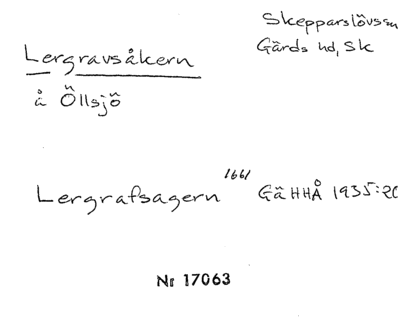 Skepparslövssn
Gärds hd, Sk
Lergravsåkern
å Öllsjö
Lergrafsagern 1661 GäHHÅ 1935:20
Nr 17063